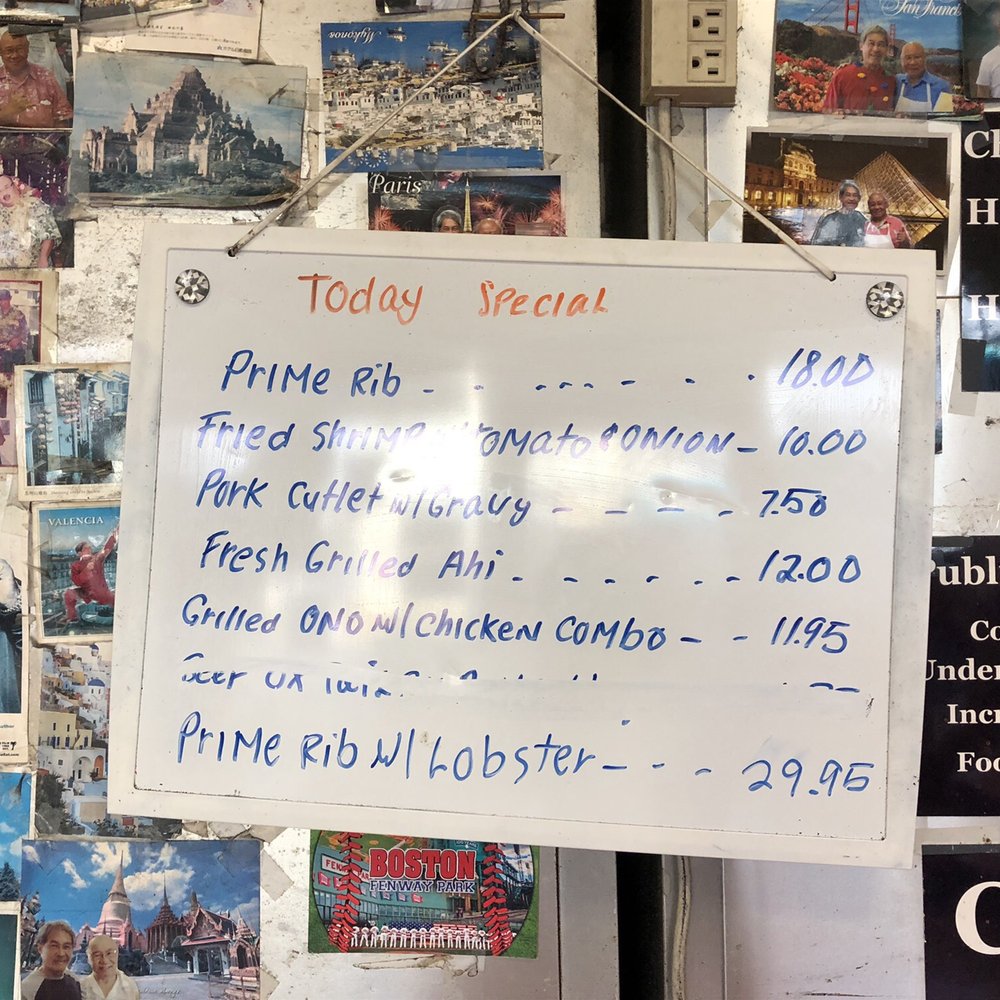 San Franci
Mykonos
Paris
Ch
H
H
Today Special
Prime Rib - - - - - - - - 18.00
Fried Shrimp w/Tomato & Onion - 10.00
Pork Cutlet w/Gravy - - - - - 7.50
Fresh Grilled Ahi - - - - - - - 12.00
Grilled Ono w/Chicken Combo - - 11.95
Prime Rib w/Lobster - - - 29.95
VALENCIA
Publi
Co
Under
Incr
Foo
BOSTON
FENWAY PARK
C